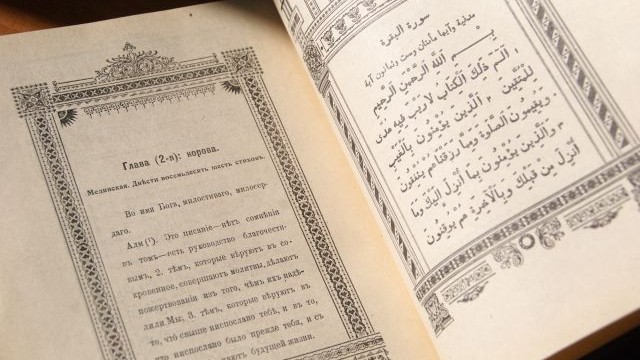 Глава (2-я): корова.
Мединская. Двѣсти восемьдесять шесть стиховъ.
Во имя Бога, милостиваго, милосер-
даго.
Алм (¹). Это писаніе—нѣтъ сомнѣнія
въ томъ—есть руководство благочести-
вымъ, 2, тѣмъ, которые вѣруютъ въ со-
кровенное, совершаютъ молитвы, дѣлаютъ
пожертвованія изъ того, чѣмъ ихъ надѣ-
лили Мы; 3, тѣмъ, которые вѣруютъ въ
то, что свыше ниспослано тебѣ, и въ то,
что ниспослано было прежде тебя, и съ
будущей жизни.
سورة البقرة
مدنية وآيها مأتان وست وثمانون آية
بسم الله الرحمن الرحيم
الم ذلك الكتاب لا ريب فيه هدى
للمتقين الذين يؤمنون بالغيب
ويقيمون الصلوة ومما رزقناهم ينفقون
والذين يؤمنون بما أنزل اليك وما
أنزل من قبلك وبالآخرة هم يوقنون